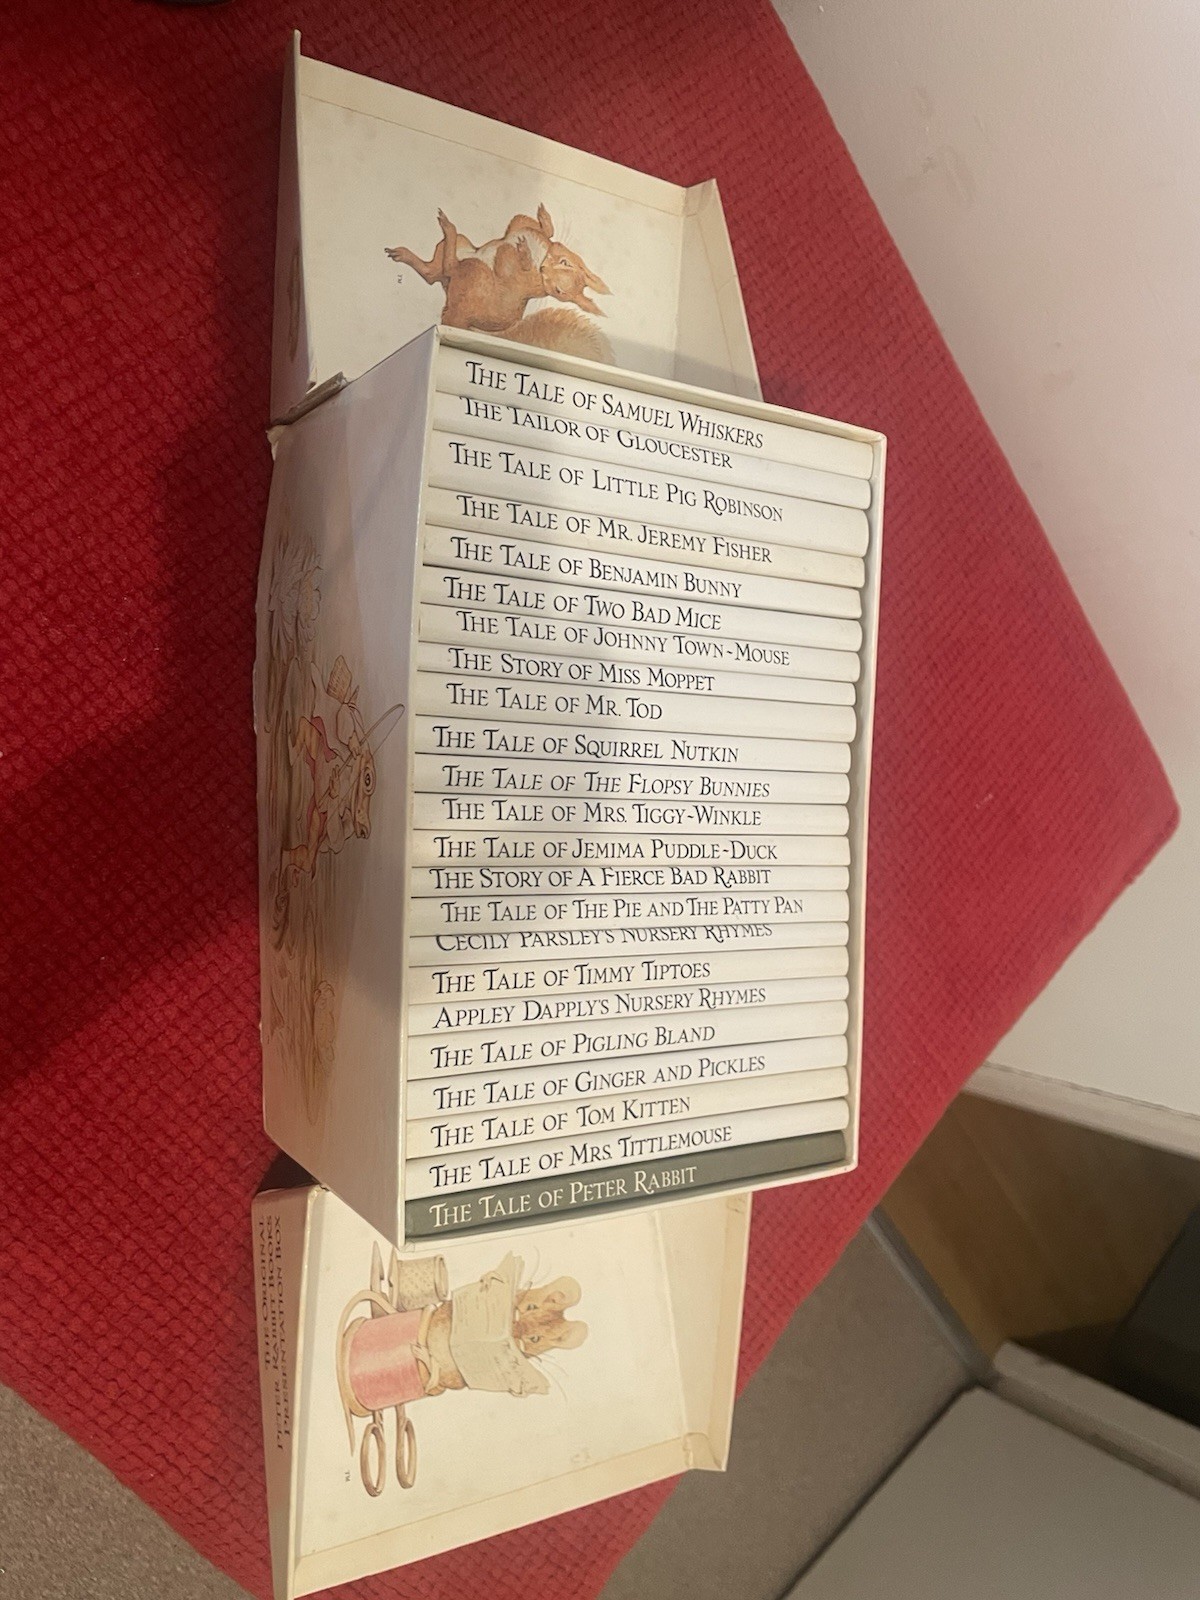 THE TALE OF SAMUEL WHISKERS
THE TAILOR OF GLOUCESTER
THE TALE OF LITTLE PIG ROBINSON
THE TALE OF MR. JEREMY FISHER
THE TALE OF BENJAMIN BUNNY
THE TALE OF TWO BAD MICE
THE TALE OF JOHNNY TOWN-MOUSE
THE STORY OF MISS MOPPET
THE TALE OF MR. TOD
THE TALE OF SQUIRREL NUTKIN
THE TALE OF THE FLOPSY BUNNIES
THE TALE OF MRS. TIGGY-WINKLE
THE TALE OF JEMIMA PUDDLE-DUCK
THE STORY OF A FIERCE BAD RABBIT
THE TALE OF THE PIE AND THE PATTY PAN
CECILY PARSLEY'S NURSERY RHYMES
THE TALE OF TIMMY TIPTOES
APPLEY DAPPLY'S NURSERY RHYMES
THE TALE OF PIGLING BLAND
THE TALE OF GINGER AND PICKLES
THE TALE OF TOM KITTEN
THE TALE OF MRS. TITTLEMOUSE
THE TALE OF PETER RABBIT
THE ORIGINAL
PETER RABBIT BOOKS
PRESENTATION BOX
TM
TM